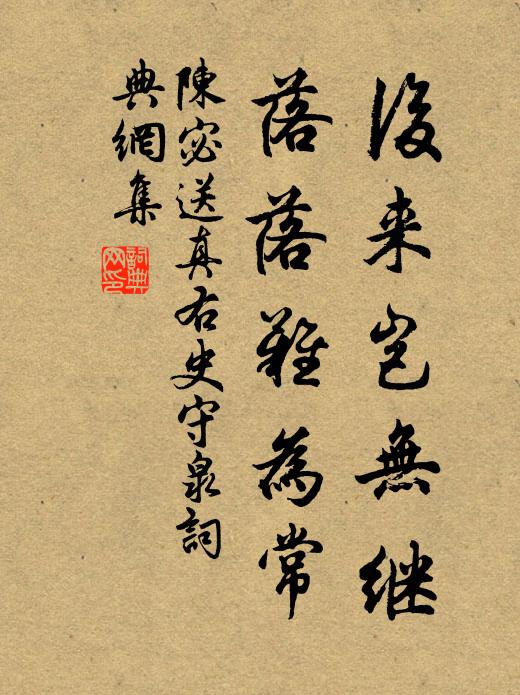 後来岂無继
落落難為常
陳宓送真右史守泉詞
典網集
詞典网印